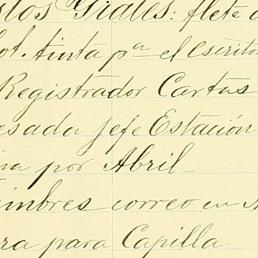 flete
tinta pª el escrito
Registrador Cartas
esada Jefe Estación
na por Abril
imbres correo en
ra para Capilla